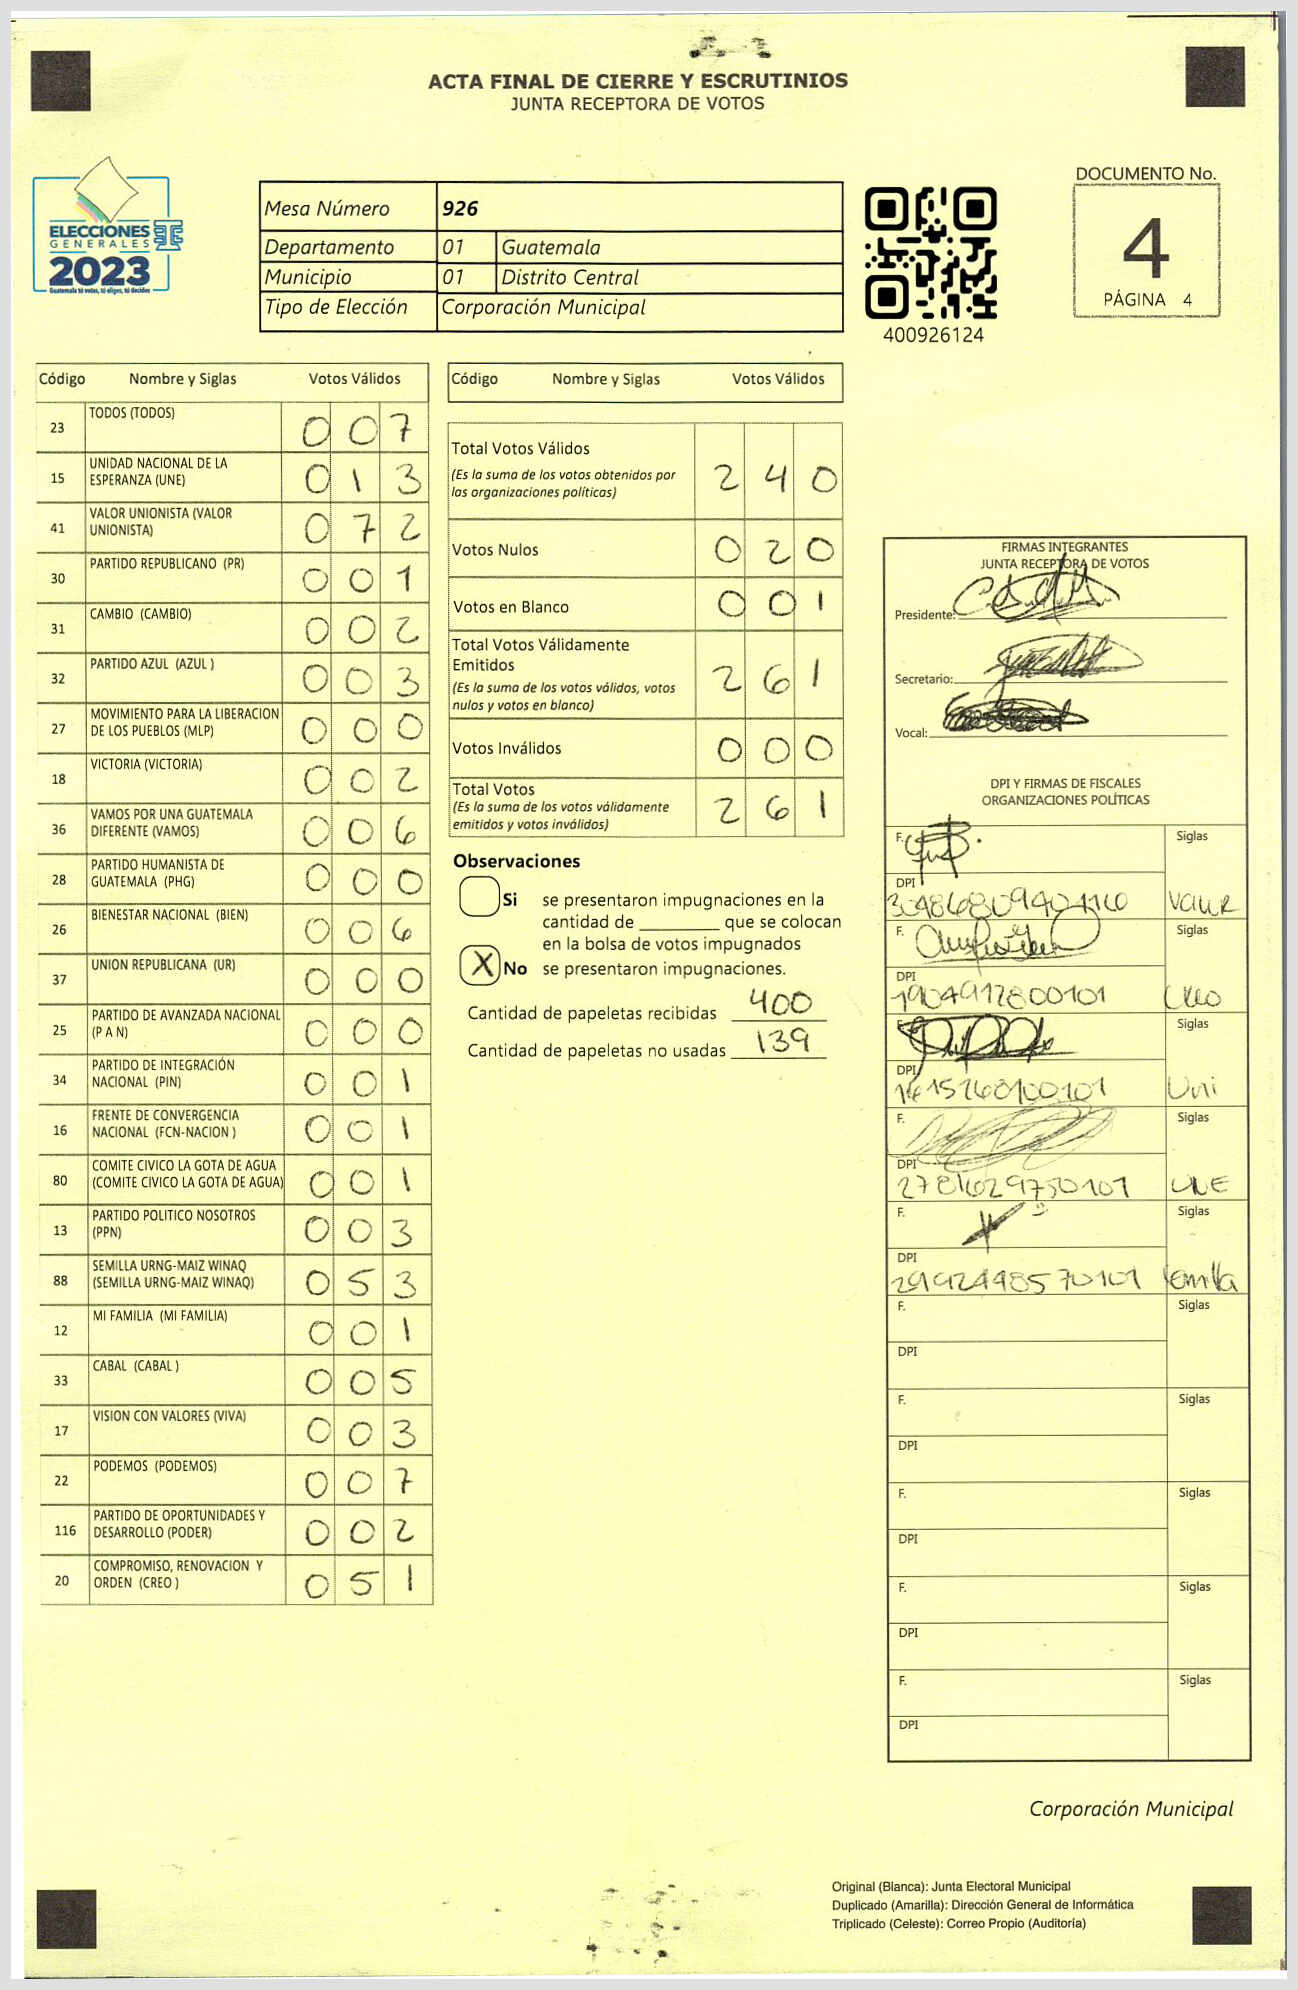 ACTA FINAL DE CIERRE Y ESCRUTINIOS
JUNTA RECEPTORA DE VOTOS
ELECCIONES
GENERALES
2023
Guatemala tú votas, tú eliges, tú decides
Mesa Número 926
Departamento 01 Guatemala
Municipio 01 Distrito Central
Tipo de Elección Corporación Municipal
400926124
DOCUMENTO No.
4
PÁGINA 4
Código Nombre y Siglas Votos Válidos
23 TODOS (TODOS) 0 0 7
15 UNIDAD NACIONAL DE LA
ESPERANZA (UNE) 0 1 3
41 VALOR UNIONISTA (VALOR
UNIONISTA) 0 7 2
30 PARTIDO REPUBLICANO (PR) 0 0 1
31 CAMBIO (CAMBIO) 0 0 2
32 PARTIDO AZUL (AZUL ) 0 0 3
27 MOVIMIENTO PARA LA LIBERACION
DE LOS PUEBLOS (MLP) 0 0 0
18 VICTORIA (VICTORIA) 0 0 2
36 VAMOS POR UNA GUATEMALA
DIFERENTE (VAMOS) 0 0 6
28 PARTIDO HUMANISTA DE
GUATEMALA (PHG) 0 0 0
26 BIENESTAR NACIONAL (BIEN) 0 0 6
37 UNION REPUBLICANA (UR) 0 0 0
25 PARTIDO DE AVANZADA NACIONAL
(P A N) 0 0 0
34 PARTIDO DE INTEGRACIÓN
NACIONAL (PIN) 0 0 1
16 FRENTE DE CONVERGENCIA
NACIONAL (FCN-NACION ) 0 0 1
80 COMITE CIVICO LA GOTA DE AGUA
(COMITE CIVICO LA GOTA DE AGUA) 0 0 1
13 PARTIDO POLITICO NOSOTROS
(PPN) 0 0 3
88 SEMILLA URNG-MAIZ WINAQ
(SEMILLA URNG-MAIZ WINAQ) 0 5 3
12 MI FAMILIA (MI FAMILIA) 0 0 1
33 CABAL (CABAL ) 0 0 5
17 VISION CON VALORES (VIVA) 0 0 3
22 PODEMOS (PODEMOS) 0 0 7
116 PARTIDO DE OPORTUNIDADES Y
DESARROLLO (PODER) 0 0 2
20 COMPROMISO, RENOVACION Y
ORDEN (CREO ) 0 5 1
Código Nombre y Siglas Votos Válidos
Total Votos Válidos 2 4 0
(Es la suma de los votos obtenidos por
las organizaciones políticas)
Votos Nulos 0 2 0
Votos en Blanco 0 0 1
Total Votos Válidamente
Emitidos 2 6 1
(Es la suma de los votos válidos, votos
nulos y votos en blanco)
Votos Inválidos 0 0 0
Total Votos 2 6 1
(Es la suma de los votos válidamente
emitidos y votos inválidos)
Observaciones
Si se presentaron impugnaciones en la
cantidad de ________ que se colocan
en la bolsa de votos impugnados
X No se presentaron impugnaciones.
Cantidad de papeletas recibidas 400
Cantidad de papeletas no usadas 139
FIRMAS INTEGRANTES
JUNTA RECEPTORA DE VOTOS
Presidente:
Secretario:
Vocal:
DPI Y FIRMAS DE FISCALES
ORGANIZACIONES POLÍTICAS
F. Siglas
DPI
Valor
F. Siglas
DPI
1904912800101 Creo
F. Siglas
DPI
1615268100101 Uni
F. Siglas
DPI
2781629750101 UNE
F. Siglas
DPI
2992498570101 Semilla
F. Siglas
DPI
F. Siglas
DPI
F. Siglas
DPI
F. Siglas
DPI
F. Siglas
DPI
Corporación Municipal
Original (Blanca): Junta Electoral Municipal
Duplicado (Amarilla): Dirección General de Informática
Triplicado (Celeste): Correo Propio (Auditoría)